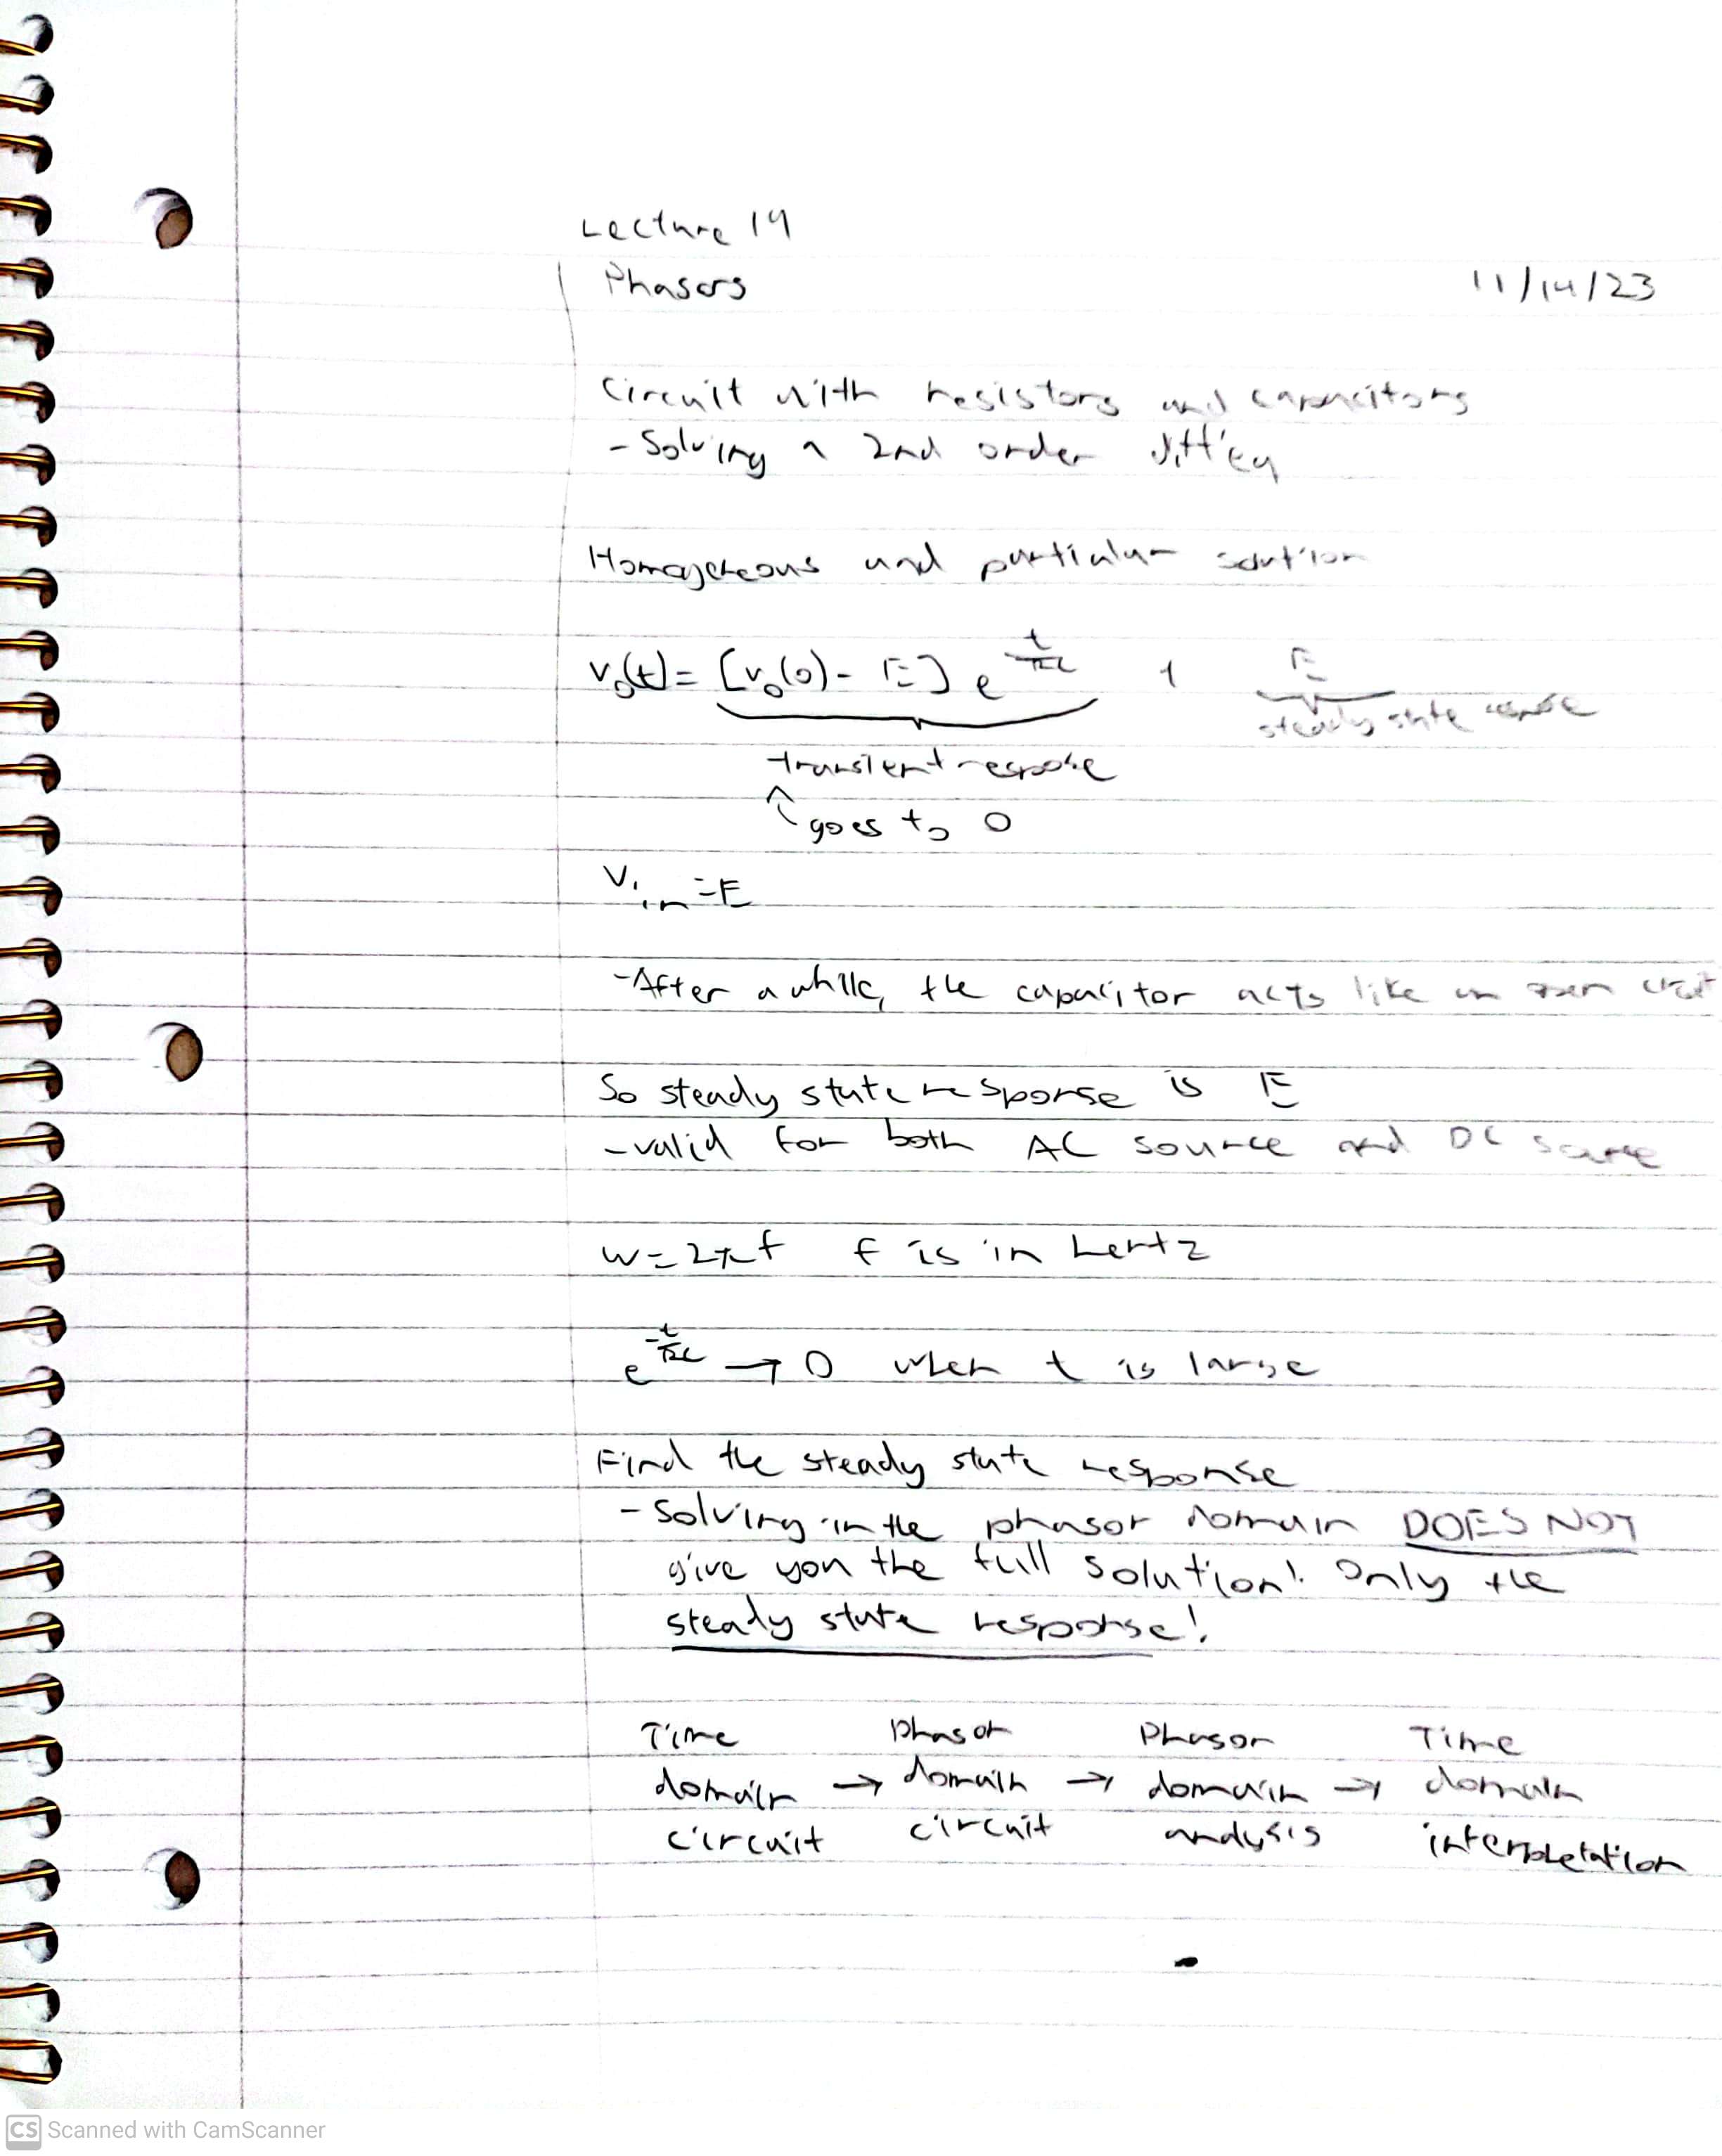 Lecture 19
Phasors 11/14/23
Circuit with resistors and capacitors
- Solving a 2nd order diff'eq
Homogeneous and particular solution
v₀(t) = [v₀(0) - E] e^(-t/RC) + E
steady state response
transient response
goes to 0
V_in = E
- After a while, the capacitor acts like an open circuit
So steady state response is E
- valid for both AC source and DC source
w = 2πf f is in hertz
e^(-t/RC) → 0 when t is large
Find the steady state response
- Solving in the phasor domain DOES NOT
give you the full solution! Only the
steady state response!
Time Phasor Phasor Time
domain → domain → domain → domain
circuit circuit analysis interpretation
CS Scanned with CamScanner